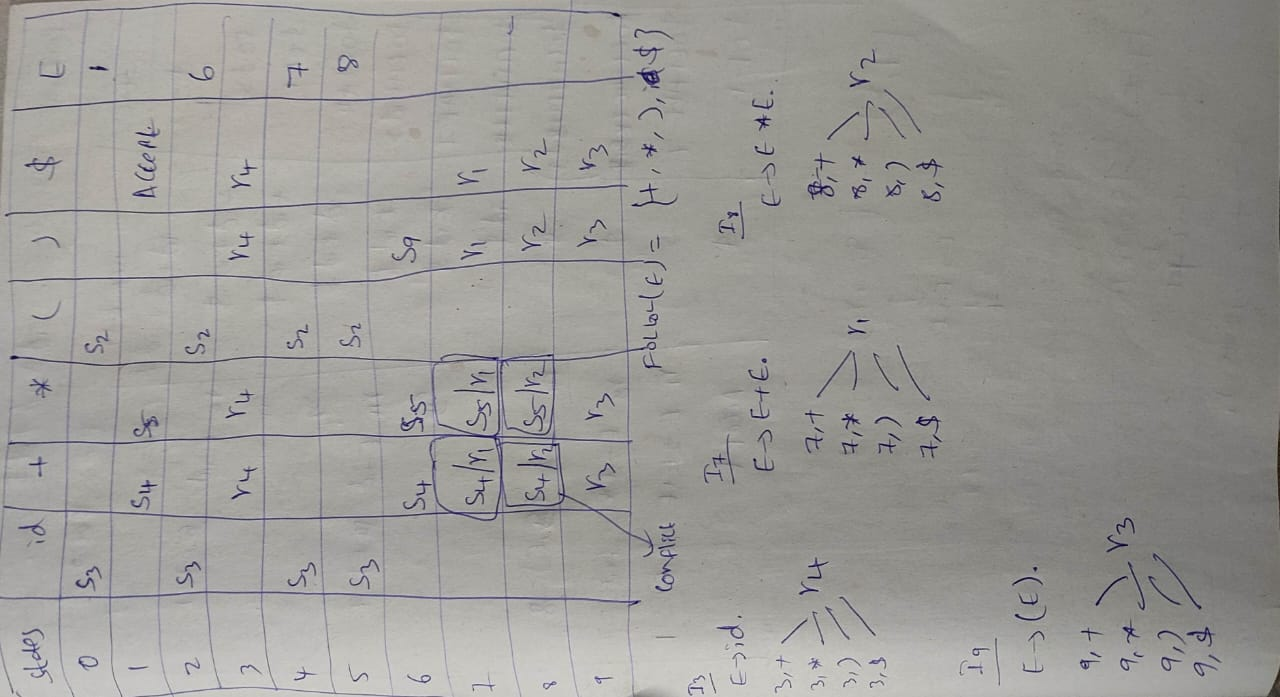 States id + * ( ) $ E
0 S3 S2 1
1 S4 S5 Accept
2 S3 S2 6
3 r4 r4 r4 r4
4 S3 S2 7
5 S3 S2 8
6 S4 S5 S9
7 S4/r1 S5/r1 r1 r1
8 S4/r2 S5/r2 r2 r2
9 r3 r3 r3 r3
Conflict
Follow(E) = {+, *, ), $}
I3
E→id.
3,+
3,* r4
3,)
3,$
I7
E→E+E.
7,+
7,* r1
7,)
7,$
I8
E→E*E.
8,+
8,* r2
8,)
8,$
I9
E→(E).
9,+
9,* r3
9,)
9,$